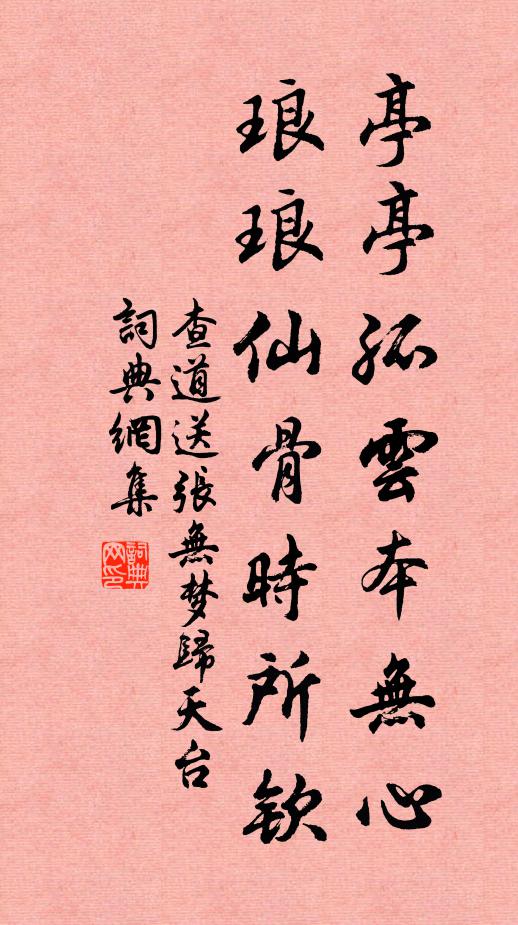 亭亭孤雲本無心
琅琅仙骨時所欽
查道送張無梦歸天台
詞典網集
詞典網印